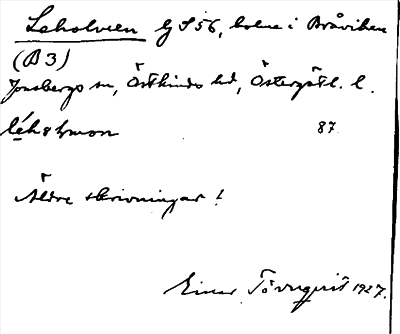 Leholmen Gj S 56, holme i Bråviken
(B3)
Jonsbergs sn, Östkinds hd, Östergötl. l.
87
Äldre skrivningar!
Einar Törnquist 1927.